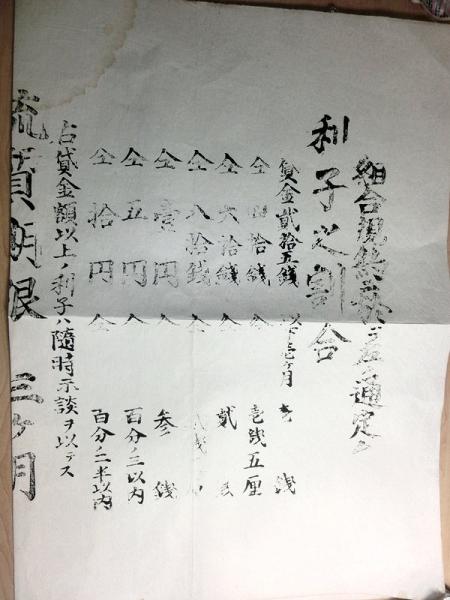 組合規約ニ依リ左ノ通定ム
利子之割合
貸金貳拾五銭 以下壱ヶ月 壱銭
仝 四拾銭 仝 壱銭五厘
仝 六拾銭 仝 貳銭
仝 八拾銭 仝
仝 壹円 仝 参銭
仝 五円 仝 百分ノ三以内
仝 拾円 仝 百分ノ二半以内
右貸金額以上ノ利子ハ隨時示談ヲ以テス
流質期限 三ヶ月